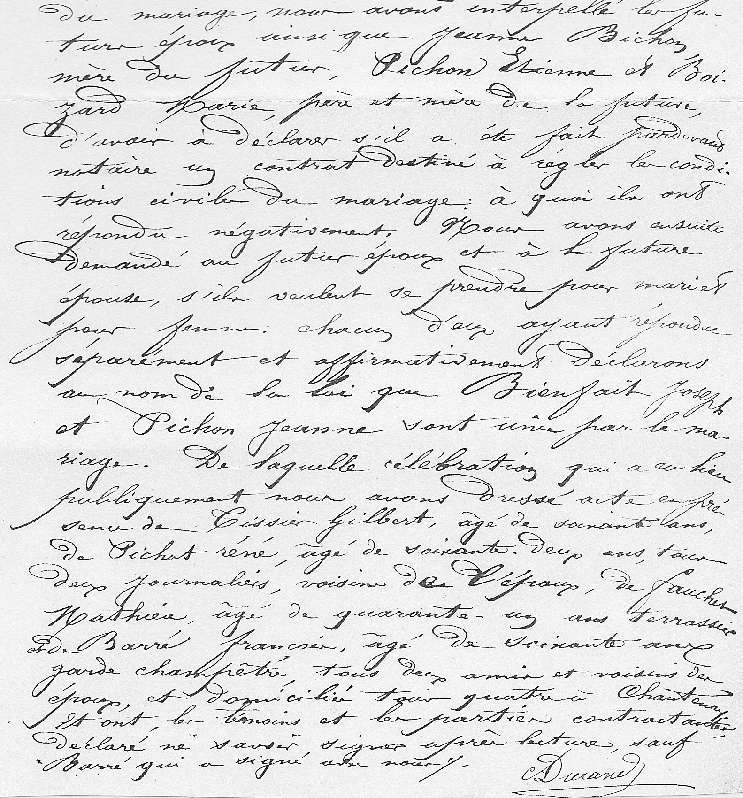 du mariage, nous avons interpellé les fu-
turs époux ainsi que Jeanne Bichon,
mère du futur, Pichon Etienne et Boi-
zard Marie, père et mère de la future,
d'avoir à déclarer s'il a été fait pardevant
notaire un contrat destiné à regler les condi-
tions civiles du mariage: à quoi ils ont
répondu négativement. Nous avons ensuite
demandé au futur époux et à la future
épouse, s'ils veulent se prendre pour mari et
pour femme: chacun d'eux ayant répondu
séparément et affirmativement déclarons
au nom de la loi que Bienfait Joseph
et Pichon Jeanne sont unis par le ma-
riage. De laquelle célébration qui a eu lieu
publiquement nous avons dressé acte en pré
sence de Tissier Gilbert, âgé de soixante ans,
de Pichot réné, âgé de soixante-deux ans, tous
deux journaliers, voisins de l'époux, de Fauchet
Mathieu, âgé de quarante-un ans terrassier
et de Barré François, âgé de soixante ans
garde champêtre, tous deux amis et voisins des
époux, et domiciliés tous quatre à
Et ont, les témoins et les parties contractantes
déclaré ne savoir signer après lecture, sauf
Barré qui a signé avec nous /.
Durand